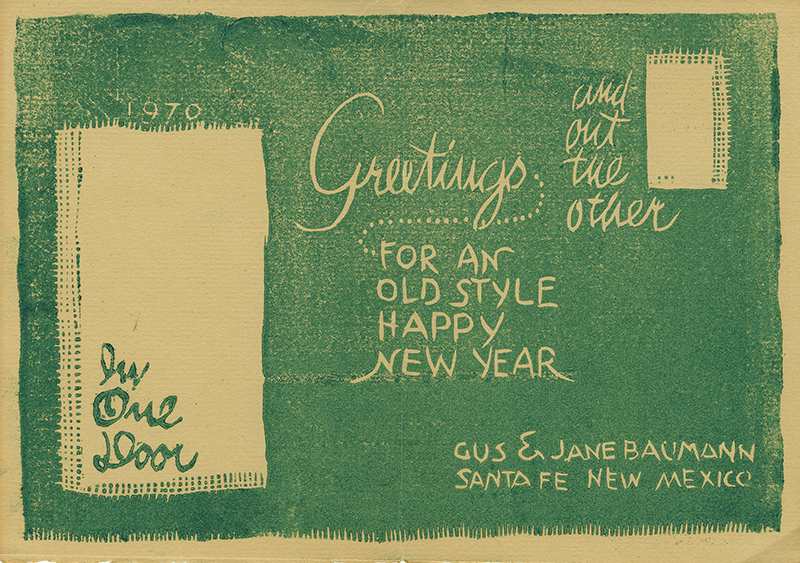 1970
In
One
Door
Greetings
FOR AN
OLD STYLE
HAPPY
NEW YEAR
and
out
the
other
GUS & JANE BAUMANN
SANTA FE NEW MEXICO